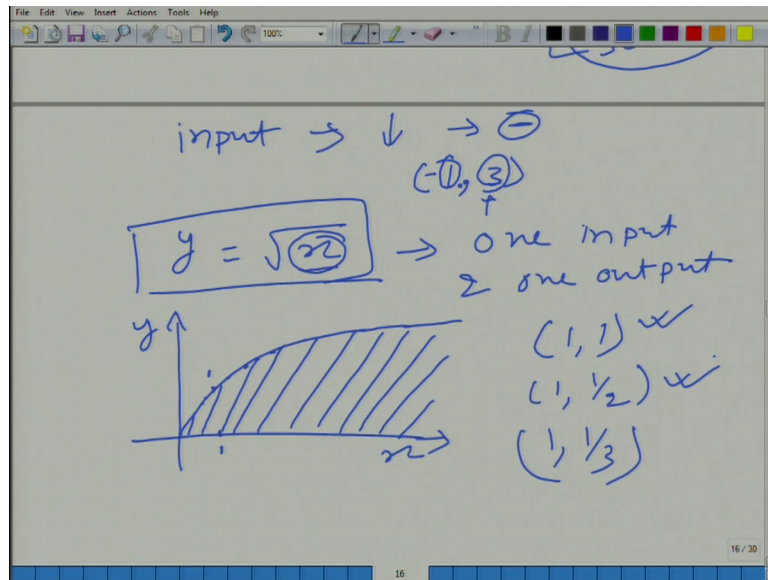 File Edit View Insert Actions Tools Help
100%
B I
input → ↓ → ⊖
(-1, 3)
↑
y = √x → one input
& one output
y
(1, 1) ✓
(1, 1/2) ✓
1
1
x
(1, 1/3)
16 / 30
16